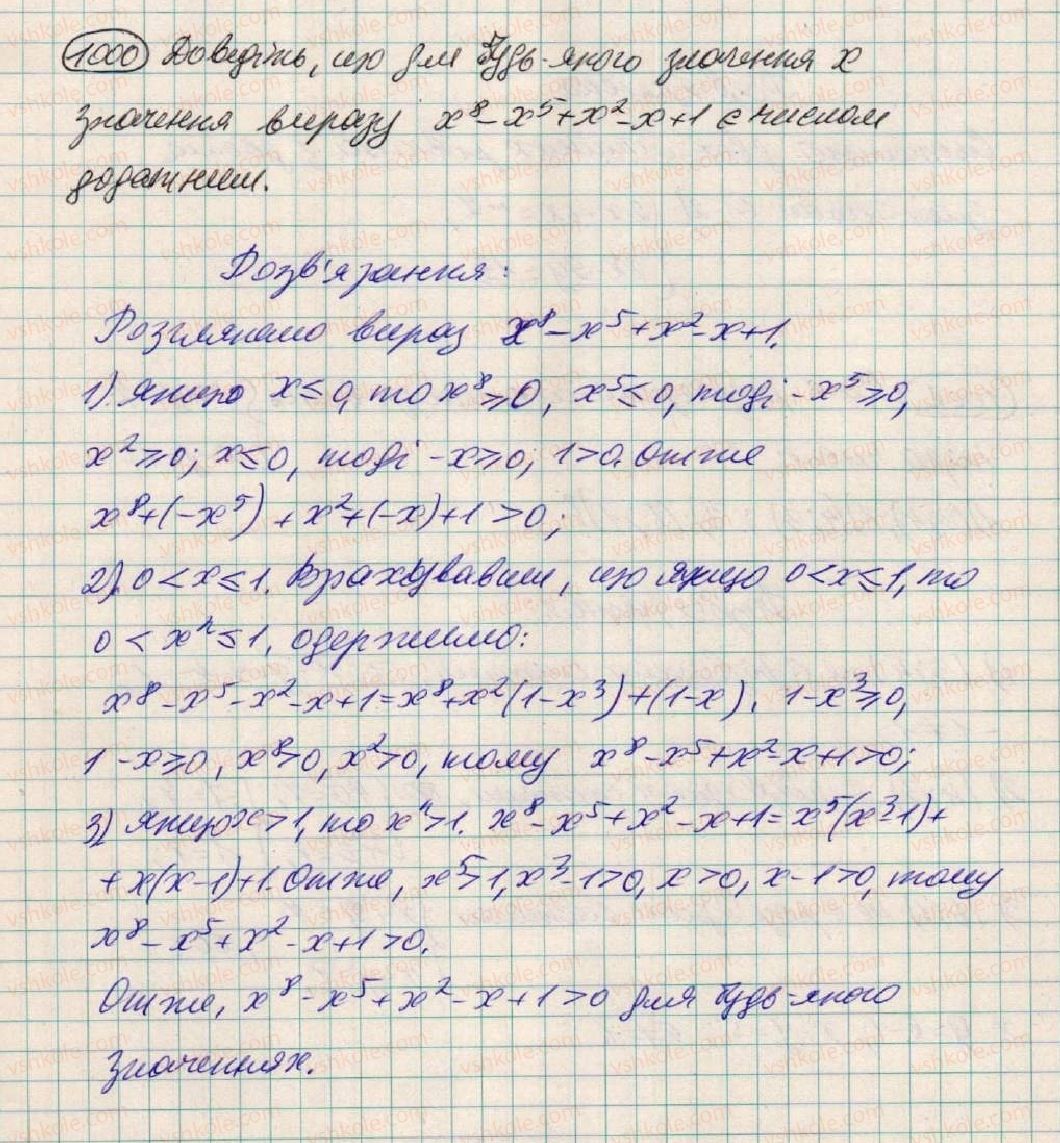 1000 Доведіть, що для будь-якого значення x
значення виразу x⁸ - x⁵ + x² - x + 1 є числом
додатним.
Розв'язання:
Розглянемо вираз x⁸ - x⁵ + x² - x + 1.
1). Якщо x ≤ 0, то x⁸ ≥ 0, x⁵ ≤ 0, тоді -x⁵ ≥ 0,
x² ≥ 0; x ≤ 0, тоді -x ≥ 0; 1 > 0. Отже
x⁸ + (-x⁵) + x² + (-x) + 1 > 0;
2). 0 < x ≤ 1. Врахувавши, що якщо 0 < x ≤ 1, то
0 < xⁿ ≤ 1, одержимо:
x⁸ - x⁵ - x² - x + 1 = x⁸ + x²(1 - x³) + (1 - x). 1 - x³ ≥ 0,
1 - x ≥ 0, x⁸ > 0, x² > 0, тому x⁸ - x⁵ + x² - x + 1 > 0;
3) Якщо x > 1, то xⁿ > 1. x⁸ - x⁵ + x² - x + 1 = x⁵(x³ - 1) +
+ x(x - 1) + 1. Отже, x⁵ > 1, x³ - 1 > 0, x > 0, x - 1 > 0, тому
x⁸ - x⁵ + x² - x + 1 > 0.
Отже, x⁸ - x⁵ + x² - x + 1 > 0 для будь-якого
значення x.